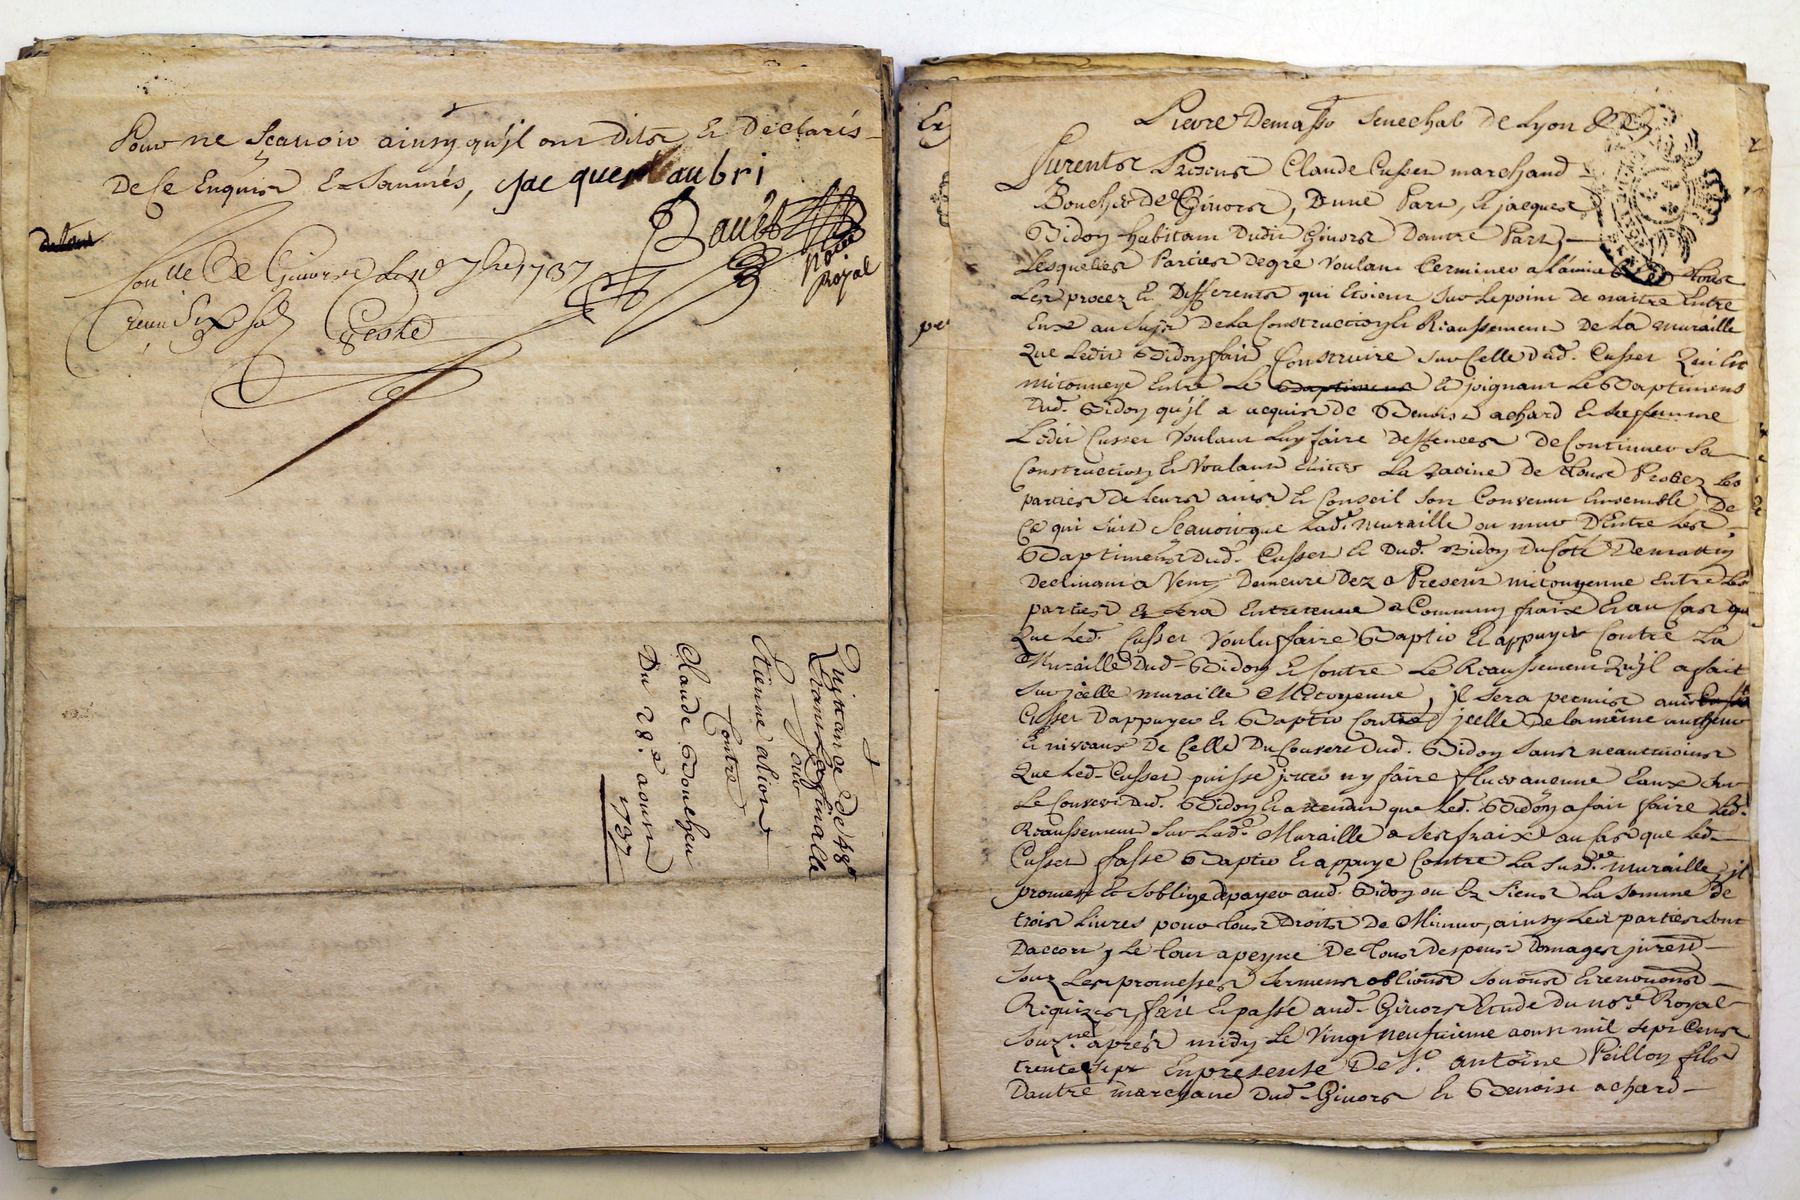 Pour ne Scavoir ainsy qu'il ont Dits et Declarés
De Ce Enquis et Sommés, Jacques aubri
Bault
No.re Royal
Con.lle A Givors Le 7bre 1737
Receu Six sols
Quittance De 48#
Pour
Etienne alion
Contre
Claude Boucheu
Du 28.e aoust
1737
Pierre Demasso Senechal de Lyon &
Furents Presens Claude Cusset marchand
Boucher de Givors, D'une Part, et jacques
Bidon habitant Dudit Givors D'autre Part,
Lesquelles Parties de gré Voulant Terminer a L'amiable Tous
Les procez et Differents qui Etoient Sur Le point de naitre Entre
Eux au Sujet De La Construction et Reaussement De La Muraille
Que Ledit Bidon fait Construire Sur Celle dud. Cusset Qui Est
mitoyneye Entre Le Baptiments et joignant Le Baptiments
Dud. Bidon qu'il a acquis de Benoist achard et Sa femme
Ledit Cusset Voulant Luy faire Deffences De Continuer Sa
Construction et Voulant Eviter La racine de Tous Procez Les
parties De Leurs avis et Conseil Son Convenu Ensemble De
Ce qui Suit Scavoir que Lad.e Muraille ou mur D'Entre Les
Baptiments Dud. Cusset et Dud. Bidon Du Coté De mattin
Declinant a Vent Demeure Dez a Present mitoyenne Entre Les
parties et Sera Entretenue a Commun fraix Et au Cas que
Que Led. Cusset Voulu faire Baptir Et appuyer Contre La
Muraille Dud. Bidon et Contre Le Reaussement Qu'il a fait
Sur jcelle muraille Mitoyenne, jl Sera permis aud.
Cusset D'appuyer et Baptir Contre jcelle De la même autheur
Et niveaux De Celle Du Couvert Dud. Bidon Sans neantmoins
Que Led. Cusset puisse jetter ny faire fluer aucune Eaux Sur
Le Couvert Dud. Bidon Et attendu que Led. Bidon a fait faire Led.
Reaussement Sur Lad.e Muraille a Ses fraix au Cas que Led.
Cusset fasse Baptir Et appuye Contre La Sud.e Muraille, jl
promet Et S'oblige de payer aud. Bidon ou Ez Siens La Somme De
trois Livres pour Tous Droits De Mimur, ainsy Les parties Sont
D'accort, Le Tout a peyne De Tous Despens Domages jnterets
Sous Les promesses Serments obligons Soumons Et renonons
Requizes fait Et passé aud. Givors Etude Du no.re Royal
Souz.né après midy Le Vingt neufvieme aoust mil Sept Cens
trente Sept En presense De S.r antoine Peillon fils
D'autre marchand Dud. Givors Et Benoist achard